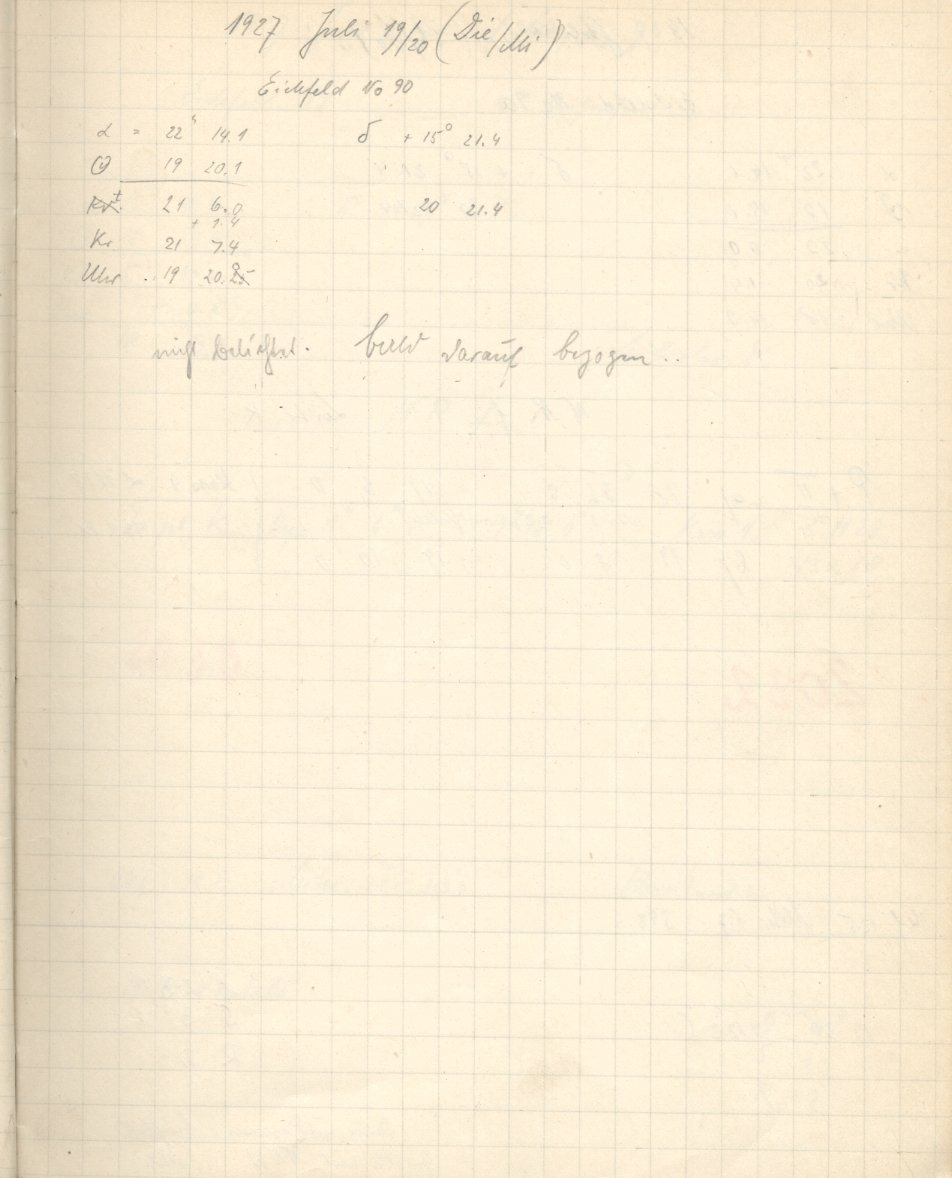 1927 Juli 19/20 (Die/Mi)
Eichfeld No 90
α = 22ʰ 14.1 δ +15° 21.4
Θ 19 20.1
t 21 6.0 20 21.4
+ 1.4
Kr 21 7.4
Uhr 19 20.
nicht belichtet. bald darauf bezogen..